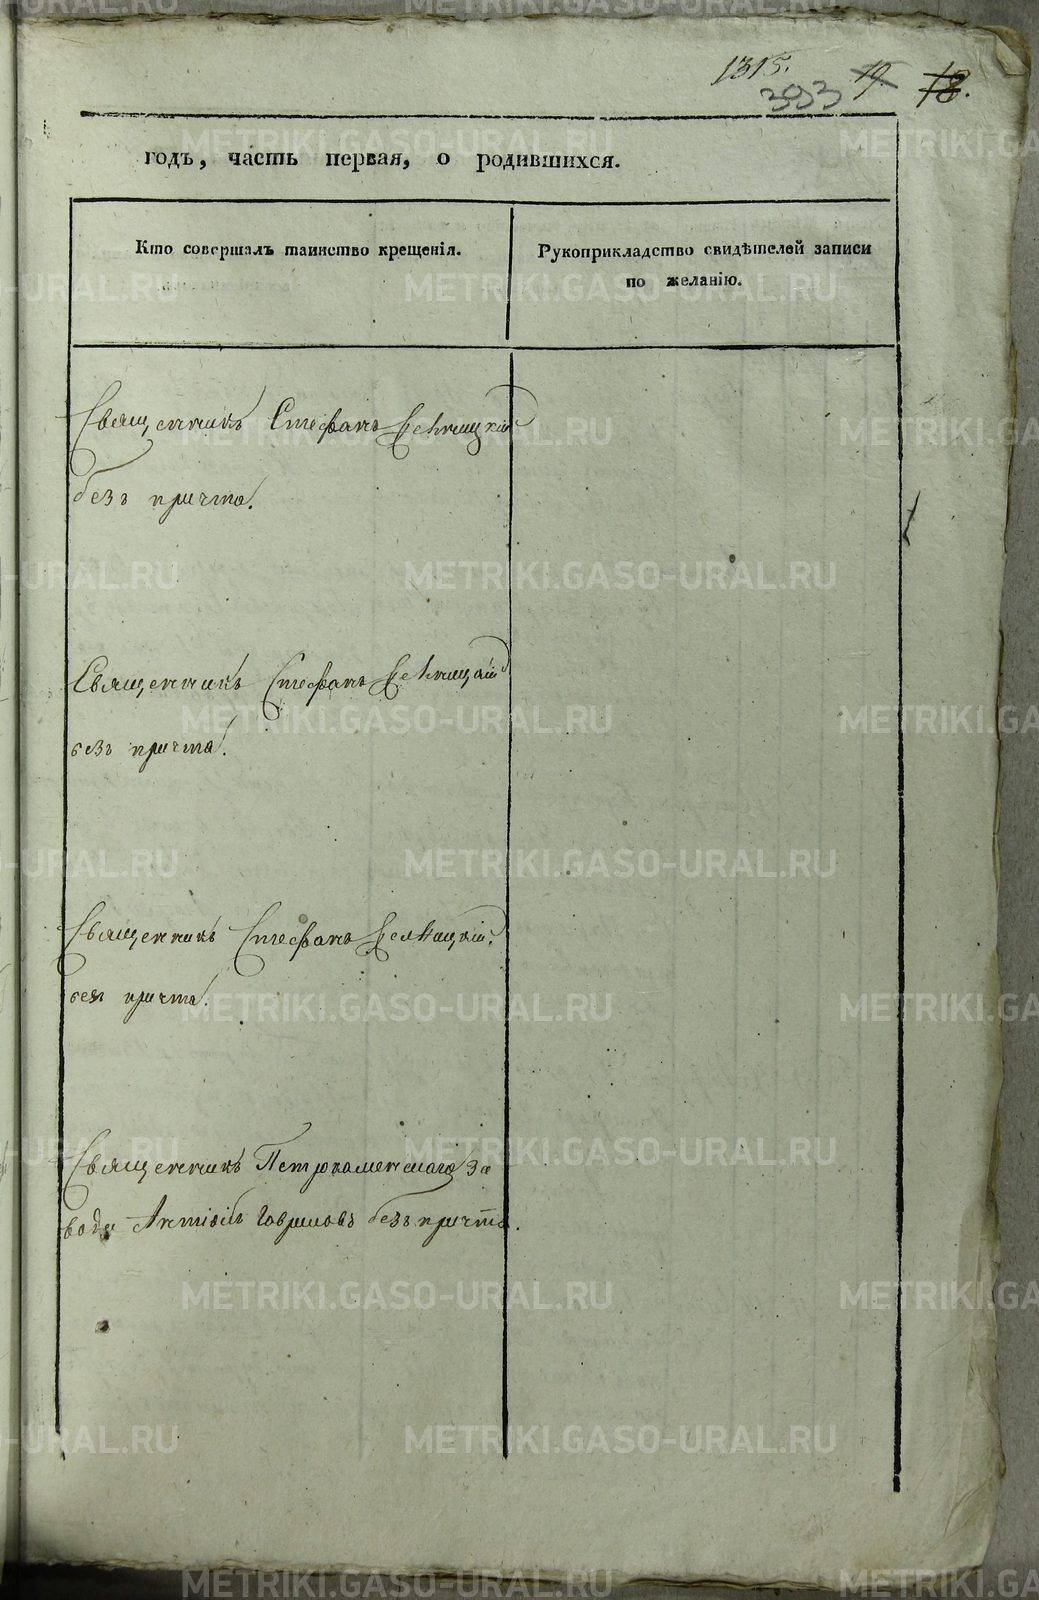 1315.
393 19. 18.
годъ, часть первая, о родившихся.
Кто совершалъ таинство крещенія.
Рукоприкладство свидѣтелей записи
по желанію.
Священникъ Стефанъ Селицкій
безъ причта.
Священникъ Стефанъ Селицкій
безъ причта.
Священникъ Стефанъ Селицкій
безъ причта.
Священникъ Петрокаменскаго за
вода Антіохъ Гавриловъ безъ причта.
METRIKI.GASO-URAL.RU